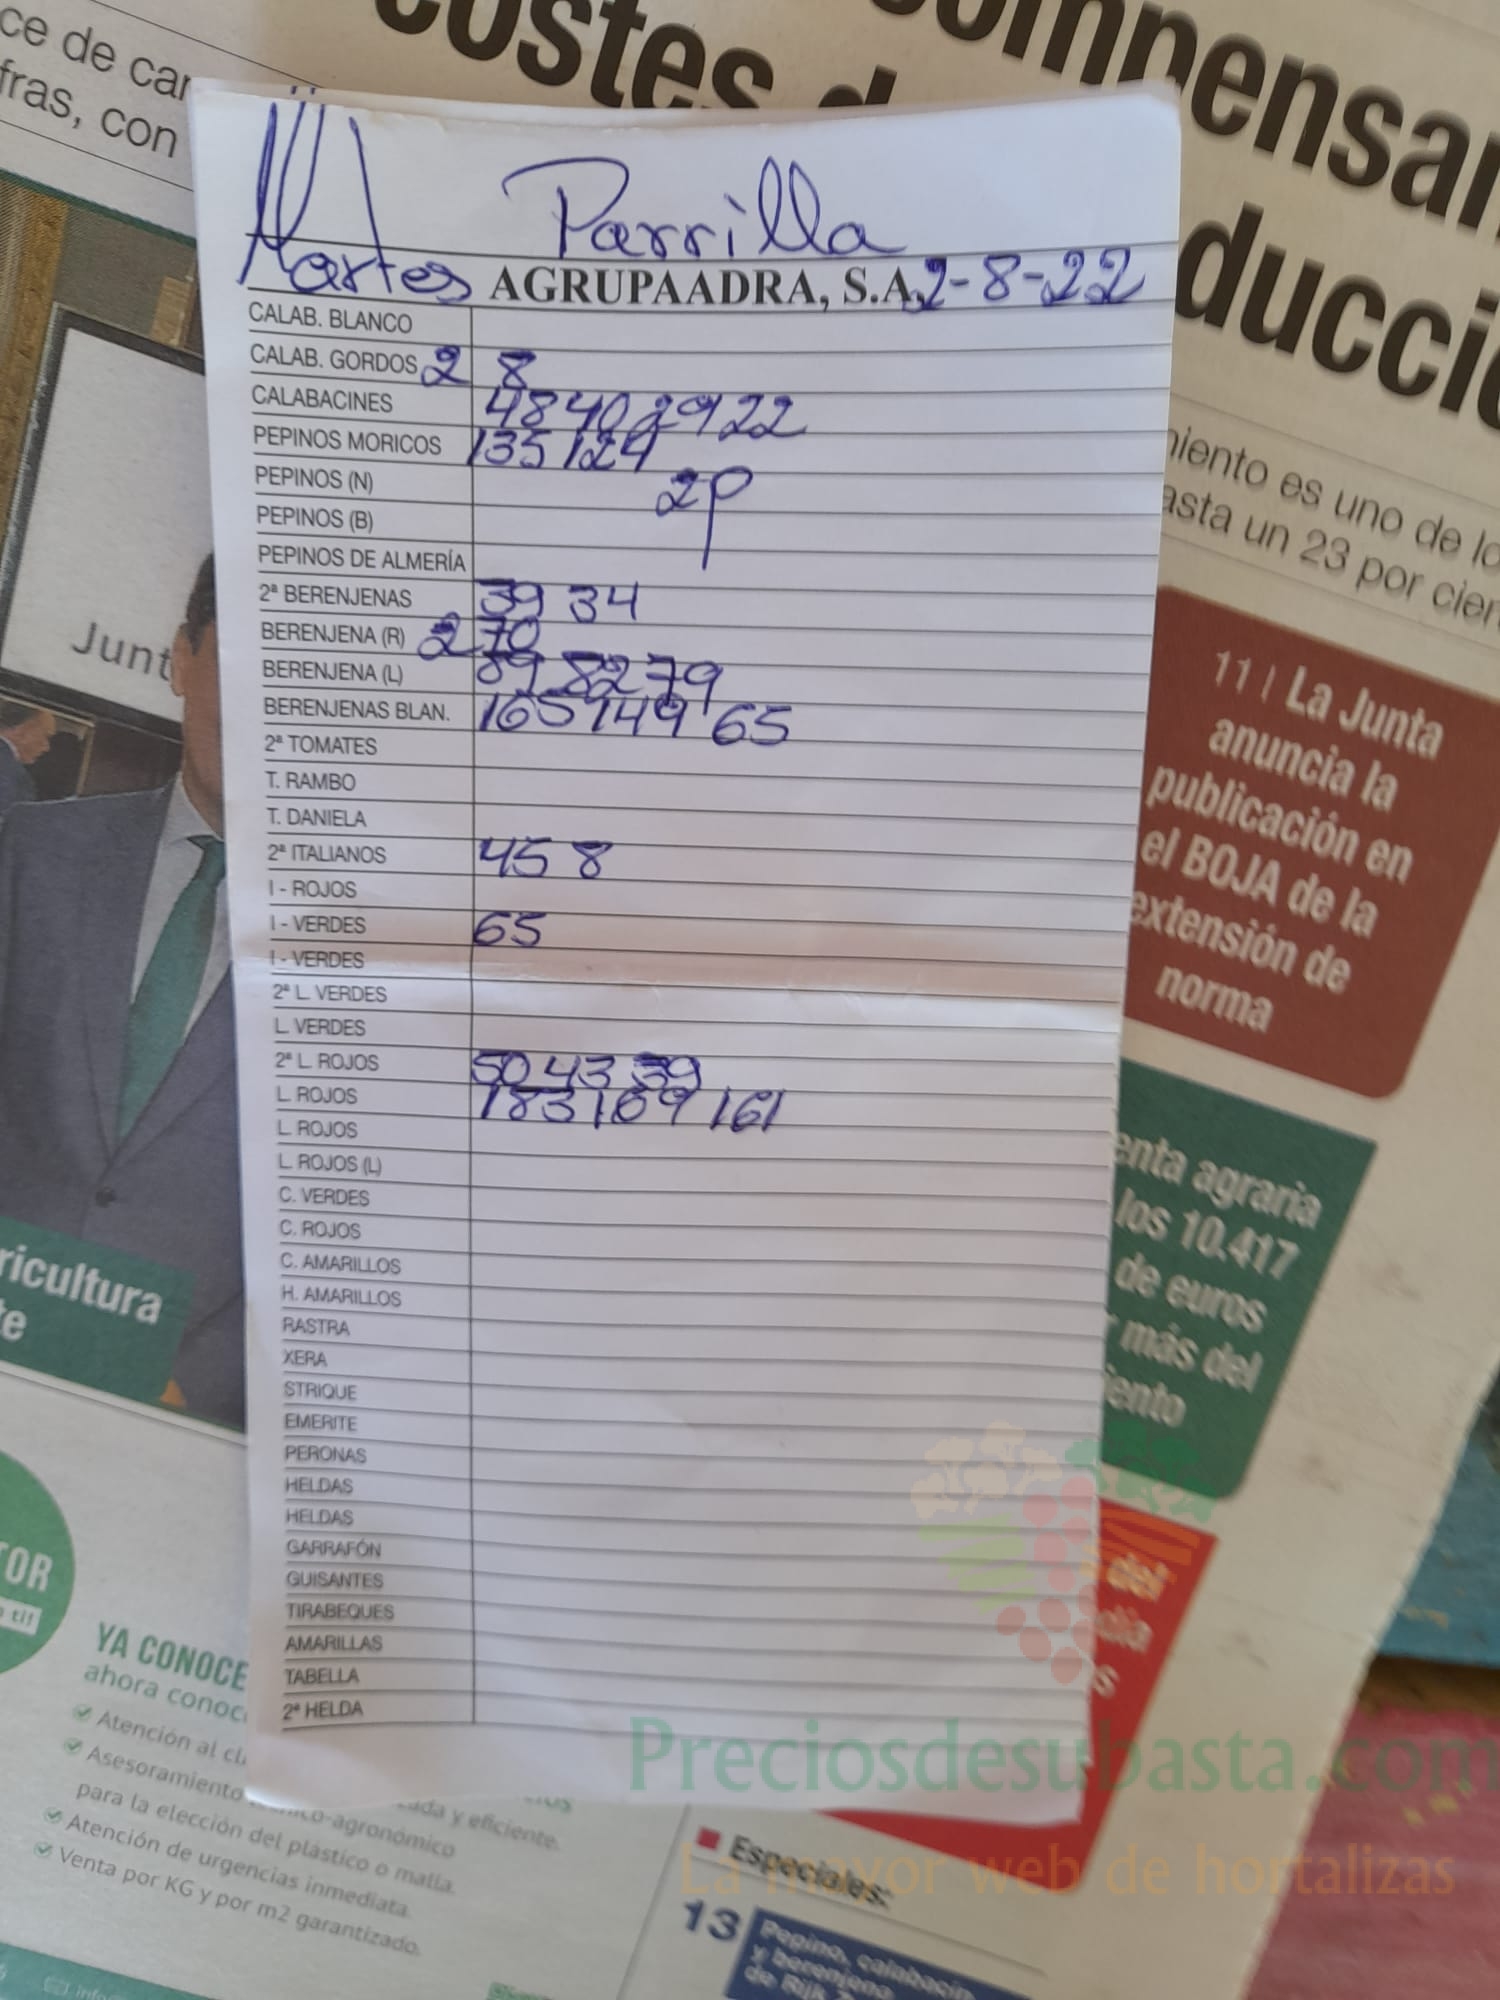 ce de car
fras, con
costes d
ompensar
ducció
niento es uno de lo
asta un 23 por cien
Junt
Parrilla
Martes AGRUPAADRA, S.A. 2-8-22
CALAB. BLANCO
CALAB. GORDOS 2 8
CALABACINES 48 40 29 22
PEPINOS MORICOS 135 124
PEPINOS (N) 2p
PEPINOS (B)
PEPINOS DE ALMERÍA
2ª BERENJENAS 39 34
BERENJENA (R) 2 70
BERENJENA (L) 89 82 79
BERENJENAS BLAN. 165 149 65
2ª TOMATES
T. RAMBO
T. DANIELA
2ª ITALIANOS 45 8
I - ROJOS
I - VERDES 65
I - VERDES
2ª L. VERDES
L. VERDES
2ª L. ROJOS 50 43 39
L. ROJOS 183 169 161
L. ROJOS
L. ROJOS (L)
C. VERDES
C. ROJOS
C. AMARILLOS
H. AMARILLOS
RASTRA
XERA
STRIQUE
EMERITE
PERONAS
HELDAS
HELDAS
GARRAFÓN
GUISANTES
TIRABEQUES
AMARILLAS
TABELLA
2ª HELDA
11 | La Junta
anuncia la
publicación en
el BOJA de la
extensión de
norma
enta agraria
los 10.417
de euros
más del
iento
del
dia
s
ricultura
te
TOR
o ti!
YA CONOCE
ahora conoc
Atención al cli
Asesoramiento técnico-agronómico
ada y eficiente.
para la elección del plástico o malla.
Atención de urgencias inmediata.
Venta por KG y por m2 garantizado.
Preciosdesubasta.com
La mayor web de hortalizas
Especiales:
13
Pepino, calabacín
y berenjena
de Rijk Z